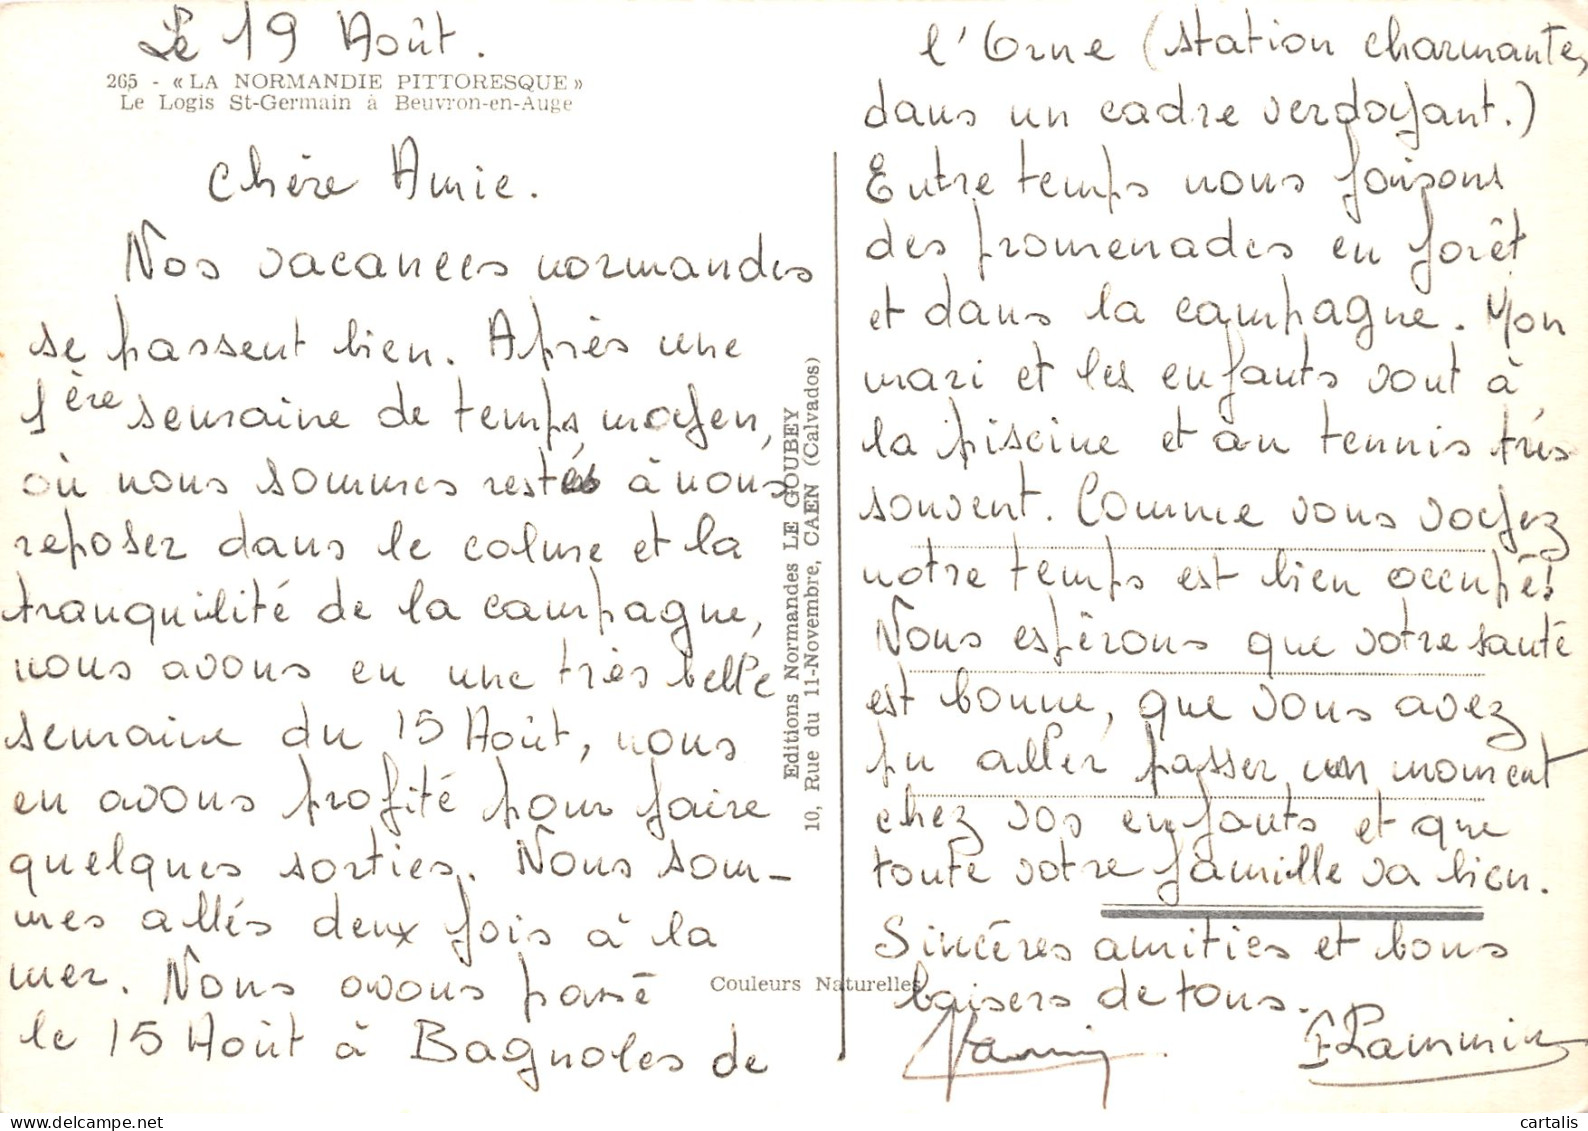 Le 19 Août.
265 - « LA NORMANDIE PITTORESQUE »
Le Logis St-Germain à Beuvron-en-Auge
Chère Amie.
Nos vacances normandes
se passent bien. Après une
1ère semaine de temps moyen,
où nous sommes restés à nous
reposer dans le calme et la
tranquilité de la campagne,
nous avons eu une très belle
semaine du 15 Août, nous
en avons profité pour faire
quelques sorties. Nous som-
mes allés deux fois à la
mer. Nous avons passé
le 15 Août à Bagnoles de
l'Orne (station charmante,
dans un cadre verdoyant.)
Entre temps nous faisons
des promenades en forêt
et dans la campagne. Mon
mari et les enfants vont à
la piscine et au tennis très
souvent. Comme vous voyez
notre temps est bien occupé!
Nous espérons que votre santé
est bonne, que vous avez
pu aller passer un moment
chez vos enfants et que
toute votre famille va bien.
Sincères amitiés et bons
baisers de tous.
Editions Normandes LE GOUBEY
10, Rue du 11-Novembre, CAEN (Calvados)
Couleurs Naturelles
cartalis